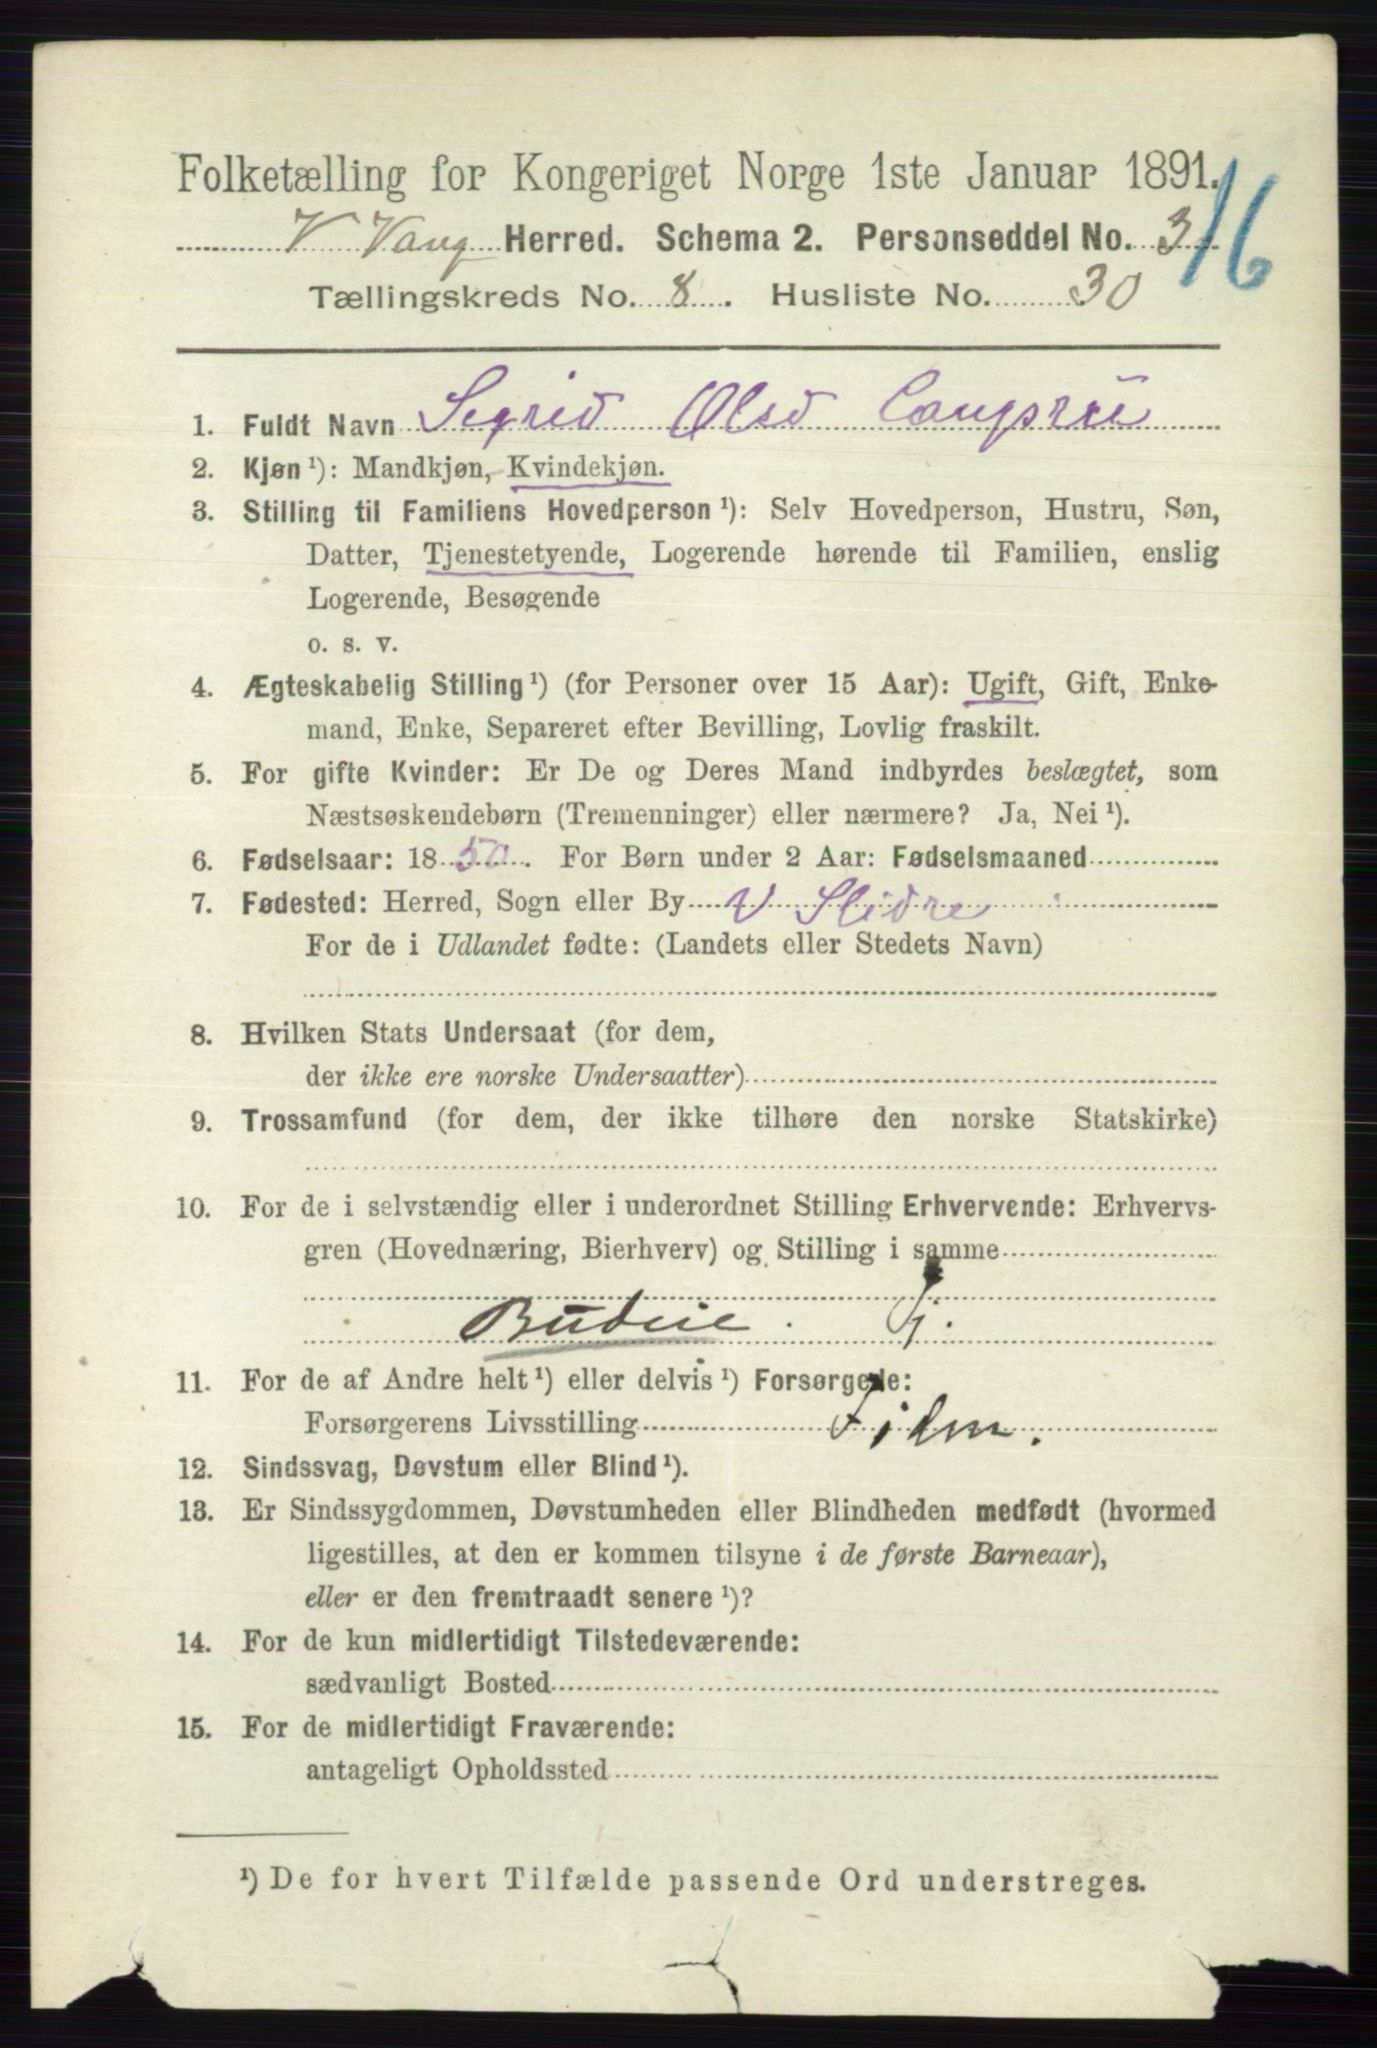 Folketælling for Kongeriget Norge 1ste Januar 1891.
V Vang Herred. Schema 2. Personseddel No. 3
16
Tællingskreds No. 8. Husliste No. 30
1. Fuldt Navn Sigrid Olsd
2. Kjøn ¹): Mandkjøn, Kvindekjøn.
3. Stilling til Familiens Hovedperson ¹): Selv Hovedperson, Hustru, Søn,
Datter, Tjenestetyende, Logerende hørende til Familien, enslig
Logerende, Besøgende
o. s. v.
4. Ægteskabelig Stilling ¹) (for Personer over 15 Aar): Ugift, Gift, Enke-
mand, Enke, Separeret efter Bevilling, Lovlig fraskilt.
5. For gifte Kvinder: Er De og Deres Mand indbyrdes beslægtet, som
Næstsøskendebørn (Tremenninger) eller nærmere? Ja, Nei ¹).
6. Fødselsaar: 1850. For Børn under 2 Aar: Fødselsmaaned
7. Fødested: Herred, Sogn eller By V Slidre
For de i Udlandet fødte: (Landets eller Stedets Navn)
8. Hvilken Stats Undersaat (for dem,
der ikke ere norske Undersaatter)
9. Trossamfund (for dem, der ikke tilhøre den norske Statskirke)
10. For de i selvstændig eller i underordnet Stilling Erhvervende: Erhvervs-
gren (Hovednæring, Bierhverv) og Stilling i samme
Budeie. Tj.
11. For de af Andre helt ¹) eller delvis ¹) Forsørgede:
Forsørgerens Livsstilling
12. Sindssvag, Døvstum eller Blind ¹).
13. Er Sindssygdommen, Døvstumheden eller Blindheden medfødt (hvormed
ligestilles, at den er kommen tilsyne i de første Barneaar),
eller er den fremtraadt senere ¹)?
14. For de kun midlertidigt Tilstedeværende:
sædvanligt Bosted
15. For de midlertidigt Fraværende:
antageligt Opholdssted
¹) De for hvert Tilfælde passende Ord understreges.